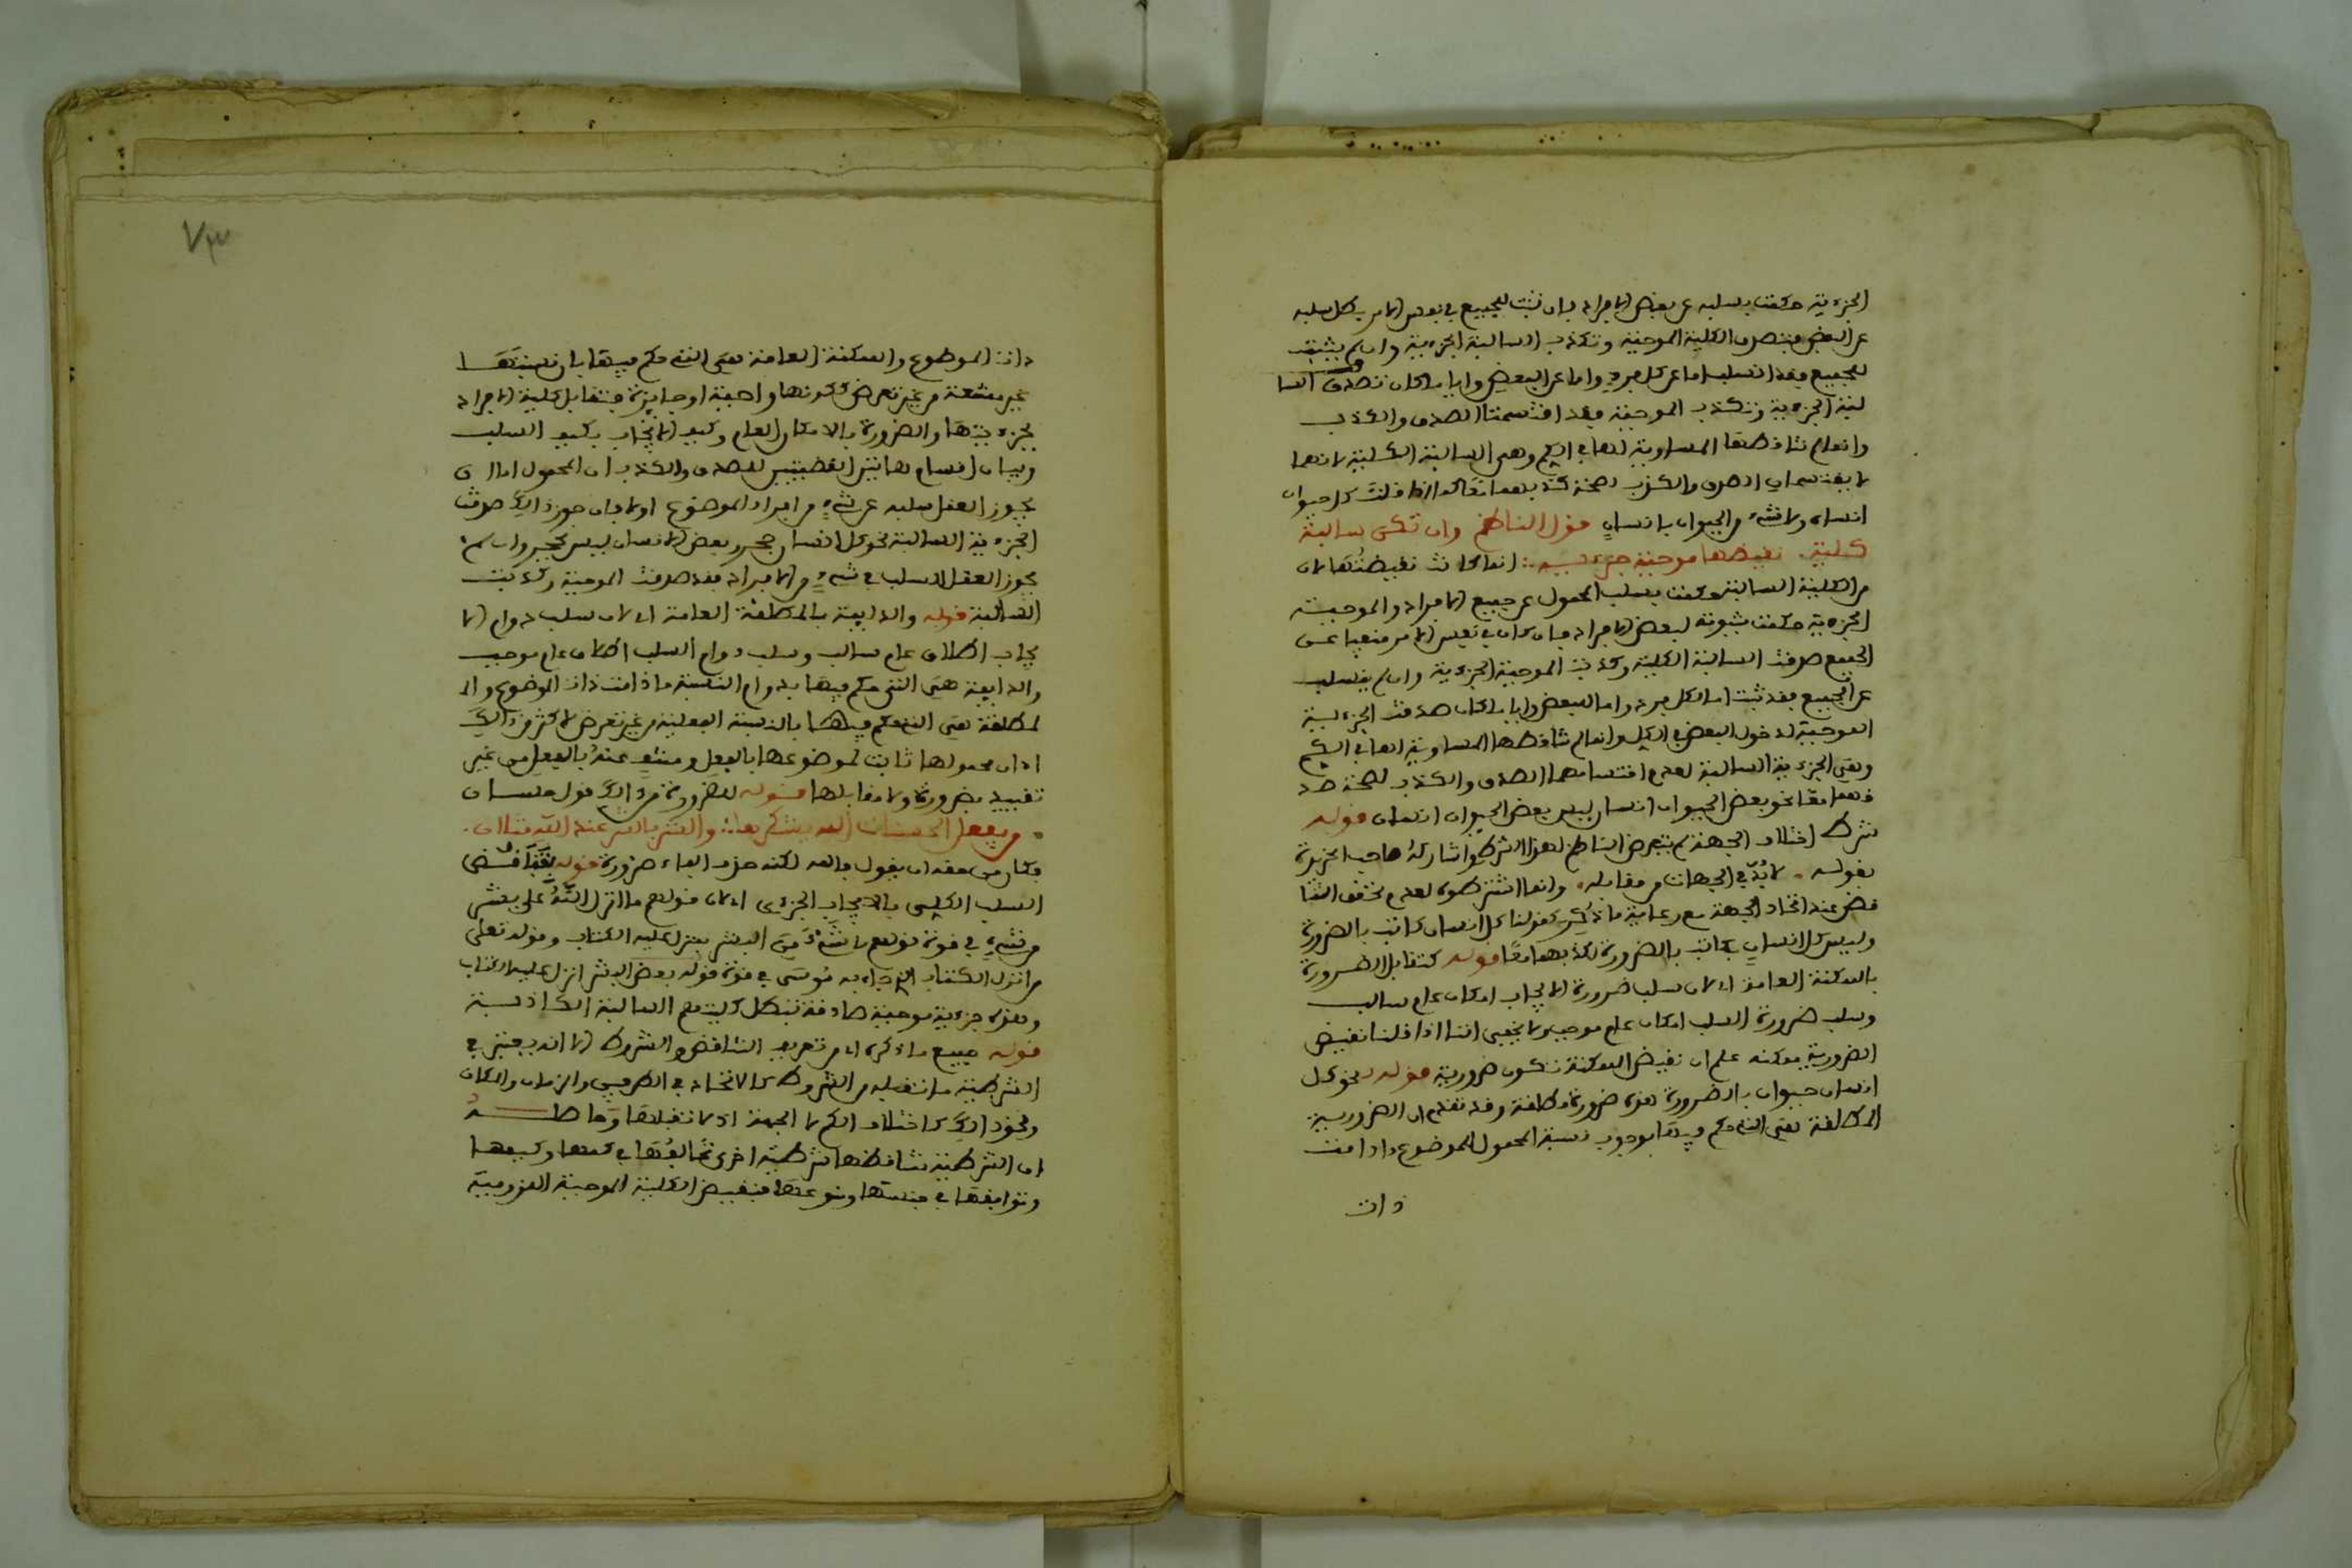 الجزءية حكمت بسلبه عن بعض الافراد فان ثبت للجميع في نفس الامر بطل سلبه
عن البعض فتصدق الكلية الموجبة وتكذب السالبة الجزءية وان لم يثبت
للجميع فقد انسلب اما عن كل فرد واما عن البعض وايا ما كان تصدق السا
لبة الجزءية وتكذب الموجبة فقد اقتسمتا الصدق والكذب
وانما لم تناقضها المساوية لها في الكم وهي السالبة الكلية لانهما
لا يقتسمان الصدق والكذب لصحة كذبهما معا كما اذا قلت كل حيوان
انسان ولا شيء من الحيوان بانسان قول الناظم وان تكن سالبة
كلية نقيضها موجبة جزءية انما كانت نقيضتها لان
الكلية السالبة حكمت بسلب المحمول عن جميع الافراد والموجبة
الجزءية حكمت بثبوته لبعض الافراد فان كان في نفس الامر منفيا عن
الجميع صدقت السالبة الكلية وكذبت الموجبة الجزءية وان لم ينسلب
عن الجميع فقد ثبت اما لكل فرد واما للبعض وايا ما كان صدقت الجزءية
الموجبة لدخول البعض في الكل وانما لم تناقضها المساوية لها في الكم
وهي الجزءية السالبة لعدم اقتسامهما الصدق والكذب لصحة صد
قهما معا نحو بعض الحيوان انسان ليس بعض الحيوان انسان قوله
شرط اختلاف الجهة لم يتعرض الناظم لهذا الشرط واشار له صاحب الجزيرة
بقوله لا بد في الجهات من مقابله وانما اشترطوه لعدم تحقق التنا
قض عند اتحاد الجهة مع رعاية ما ذكر كقولنا كل انسان كاتب بالضرورة
وليس كل انسان بكاتب بالضرورة لكذبهما معا قوله كتقابل الضرورة
بالممكنة العامة اي لان سلب ضرورة الايجاب امكان عام سالب
وسلب ضرورة السلب امكان عام موجب ولا يخفى اننا اذا قلنا نقيض
الضرورية ممكنة علم ان نقيض الممكنة تكون ضرورية قوله نحو كل
انسان حيوان بالضرورة هذه ضرورة مطلقة وقد تقدم ان الضرورية
المطلقة هي التي حكم فيها بوجوب نسبة المحمول للموضوع ما دامت
ذات
٧٣
ذات الموضوع والممكنة العامة هي التي حكم فيها بان نسبتها
غير ممتنعة من غير تعرض لكونها واجبة او جايزة فتقابل كلية الافراد
بجزءيتها والضرورة بالامكان العام وكيف الايجاب بكيف السلب
وبيان اقسام هاتين القضيتين للصدق والكذب ان المحمول اما ان
يجوز العقل سلبه عن شيء من افراد الموضوع او لا فان جوز ذلك صدقت
الجزءية السالبة نحو كل انسان حجر بعض الانسان ليس بحجر وان لم
يجوز العقل السلب في شيء من الافراد فقد صدقت الموجبة وكذبت
السالبة قوله والدايمة بالمطلقة العامة اي لان سلب دوام الا
يجاب اطلاق عام سالب وسلب دوام السلب اطلاق عام موجب
والدايمة هي التي حكم فيها بدوام النسبة ما دامت ذات الموضوع والـ
مطلقة هي التي حكم فيها بالنسبة الفعلية من غير تعرض لاكثر من ذلك
اي ان محمولها ثابت لموضوعها بالفعل ومنتف عنه بالفعل من غير
تقييد بضرورة ولا مقابلها قوله للضرورة من ذلك قول حسان
من يفعل الحسنات الله يشكرها والشر بالشر عند الله مثلان
فكان من حقه ان يقول فالله لكنه حذف الفاء ضرورة قوله فينا قض
السلب الكلي بالايجاب الجزءي اي لان قولهم ما انزل الله على بشر
من شيء في قوة قولهم لا شيء من البشر بمنزل عليه الكتاب وقوله تعلى
من انزل الكتاب الذي جاء به موسى في قوة قوله بعض البشر انزل عليه الكتاب
وهذه جزءية موجبة صادقة تبطل كلية معهم السالبة الكاذبة
قوله جميع ما ذكره اي من تعريف التناقض والشروط الا انه يعتبر في
الشرطية ما تقبله من الشروط كالاتحاد في الطرفين والزمان والمكان
ونحو ذلك كاختلاف الكم لا الجهة اذ لا تقبلها وحاصله
ان الشرطية تناقضها شرطية اخرى تخالفها في كمها وكيفها
وتوافقها في جنسها ونوعها فنقيض الكلية الموجبة اللزومية